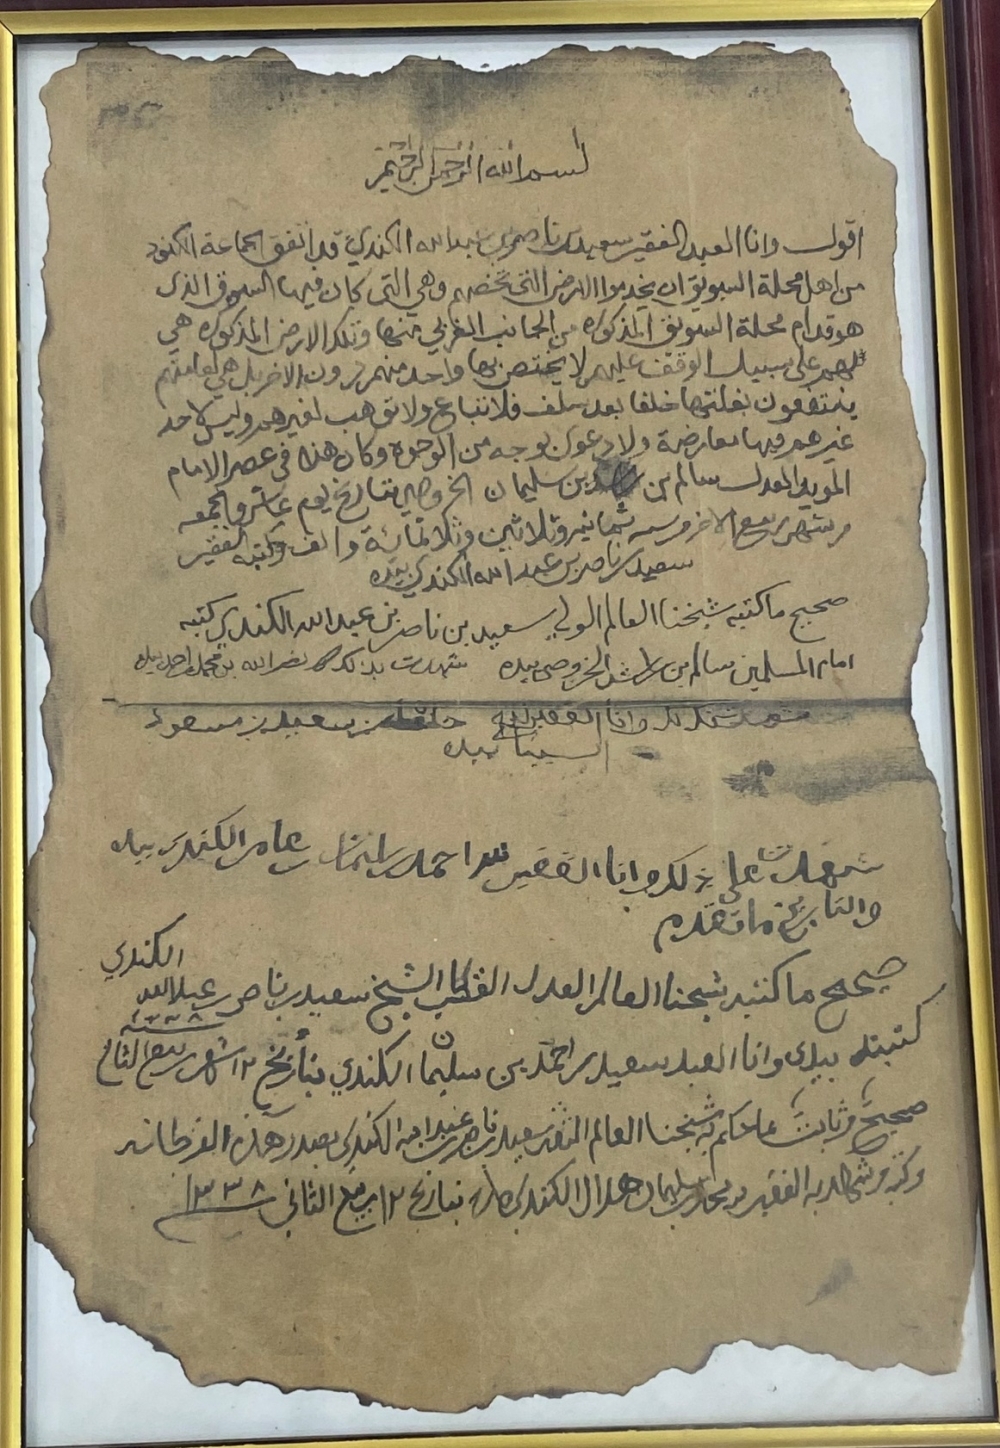 بسم الله الرحمن الرحيم
اقول وانا العبد الفقير سعيد بن ناصر بن عبدالله الكندي قد اتفق الجماعة الكنود
من اهل محلة السويق ان يخدموا الارض التي تخصهم وهي التي كان فيها السوق الذي
هو قدام محلة السويق المذكوره من الجانب الغربي منها وتلك الارض المذكوره هي
لهم على سبيل الوقف عليهم لا يختص بها واحد منهم دون الاخر بل هي لعامتهم
ينتفعون بغلتها خلفا بعد سلف فلا تباع ولا توهب لغيرهم وليس لاحد
غيرهم فيها معارضة ولا دعوى بوجه من الوجوه وكان هذا في عصر الامام
المويد العدل سالم بن راشد بن سليمان الخروصي بتاريخ يوم عاشر والجمعه
من شهر ربيع الاخر من سنه ثمانيه وثلاثين وثلاثمائة والف وكتبه الفقير
سعيد بن ناصر بن عبد الله الكندي بيده
صحيح ما كتبه شيخنا العالم الولي سعيد بن ناصر بن عبدالله الكندي كتبه
امام المسلمين سالم بن راشد الخروصي بيده شهدت بذلك نصر الله بن محمد احمد بيده
شهدت بذلك وانا الفقير لله خلفان بن سعيد بن مسعود
السيباني بيده
شهدت على ذلك وانا الفقير لله احمد بن سليمان بن عامر الكندي بيده
والتاريخ ما تقدم
صحيح ما كتبه شيخنا العالم العدل القطب الشيخ سعيد بن ناصر بن عبدالله الكندي
كتبته بيدي وانا العبد سعيد بن احمد بن سليمان الكندي بتاريخ ١٢ شهر ربيع الثاني سنة ١٣٣٨
صحيح وثابت ما حكم به شيخنا العالم الثقه سعيد بن ناصر بن عبدالله الكندي بصدر هذه القرطاسه
وكتبه وشهد به الفقير محمد بن سليمان هلال الكندي بيده بتاريخ ١٢ ربيع الثاني ١٣٣٨